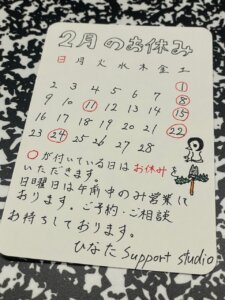 2月のお休み
日 月 火 水 木 金 土
1
2 3 4 5 6 7 8
9 10 11 12 13 14 15
16 17 18 19 20 21 22
23 24 25 26 27 28
○が付いている日はお休みを
いただきます。
日曜日は午前中のみ営業に
なります。ご予約・ご相談
お待ちしております。
ひなた Support studio